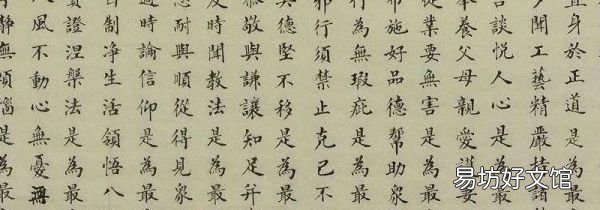 身於正道是為最
聞工藝精嚴持諸
言談悅人心是為最
奉養父母親愛護妻
從業要無害是為最
布施好品德幫助眾
行為無瑕疵是為最
邪行須禁止克己不
美德堅不移是為最
恭敬與謙讓知足并
及時聞教法是為最
忍耐與順從得見眾
適時論信仰是為最
自制淨生活領悟八
實證涅槃法是為最
八風不動心無憂無
靜無煩惱是為最
易坊好文馆